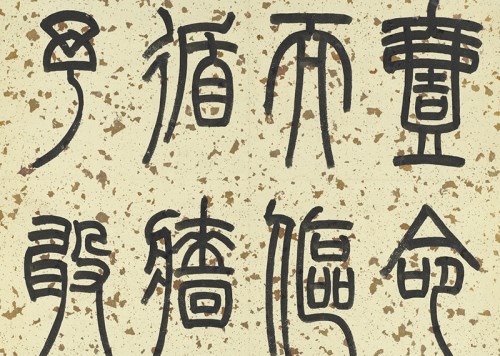 壹命
而傴
循牆
予敢